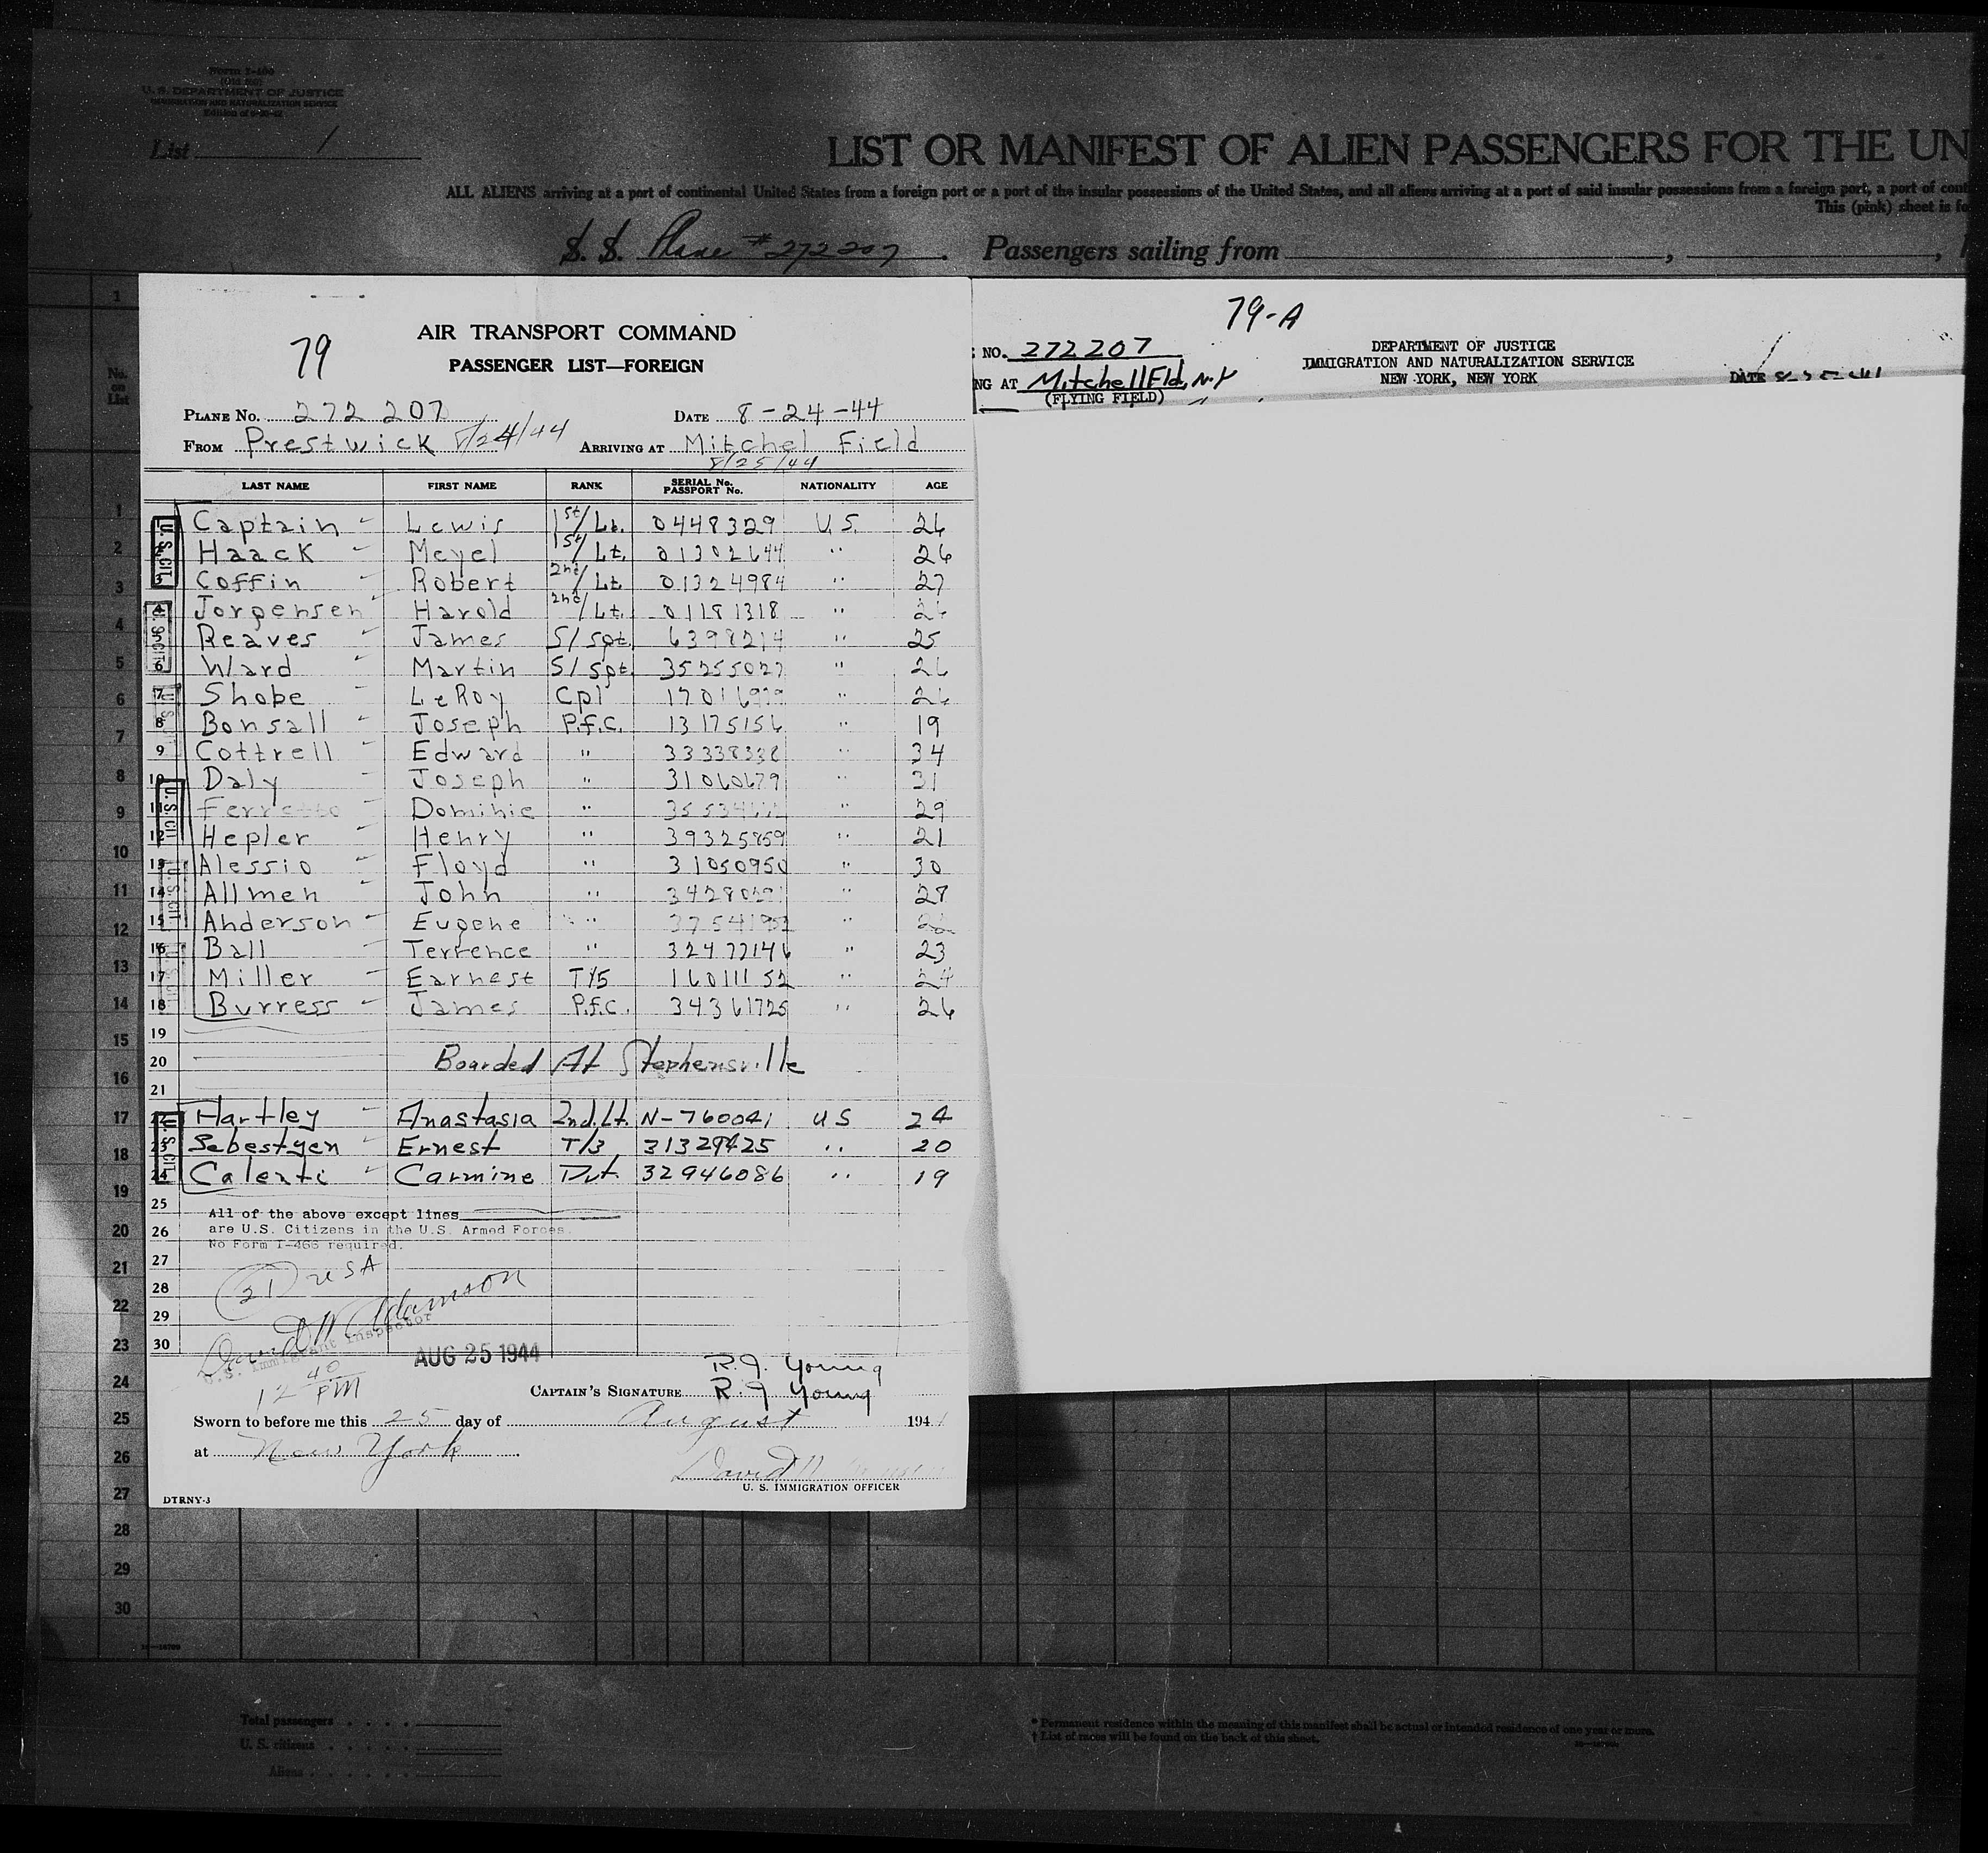 Form I-400
U. S. DEPARTMENT OF JUSTICE
IMMIGRATION AND NATURALIZATION SERVICE
List 1
LIST OR MANIFEST OF ALIEN PASSENGERS FOR THE UN
ALL ALIENS arriving at a port of continental United States from a foreign port or a port of the insular possessions of the United States, and all aliens arriving at a port of said insular possessions from a foreign port, a port of cont
This (pink) sheet is fo
S. S. Plane # 272207 . Passengers sailing from , ,
No. on List
79
AIR TRANSPORT COMMAND
PASSENGER LIST—FOREIGN
PLANE No. 272 207 DATE 8-24-44
FROM Prestwick 8/24/44 ARRIVING AT Mitchel Field
8/25/44
LAST NAME FIRST NAME RANK SERIAL No. PASSPORT No. NATIONALITY AGE
Captain Lewis 1st/Lt. 0448329 U.S. 26
Haack Meyel 1st/Lt. 01302644 " 26
Coffin Robert 2nd/Lt 01324984 " 27
4 Jorgensen Harold 2nd/Lt. 01181318 " 26
5 Reaves James S/Sgt. 6398214 " 25
6 Ward Martin S/Sgt. 35255027 " 26
7 Shope LeRoy Cpl " 26
8 Bonsall Joseph P.f.C. 13175156 " 19
9 Cottrell Edward " 33338338 " 34
10 Daly Joseph " 31060679 " 31
11 Dominic " " 29
12 Hepler Henry " 39325859 " 21
13 Alessio Floyd " 31050950 " 30
14 Allmen John " " 28
15 Anderson Eugene " "
16 Ball Terrence " 32477146 " 23
17 Miller Earnest T/5 16011152 " 24
18 Burress James P.f.C. 34361725 " 26
19
20 Boarded At Stephensville
21
22 Hartley Anastasia 2nd.Lt. N-760041 US 24
23 Sebestyen Ernest T/3 31329425 " 20
24 Calenti Carmine Pvt 32946086 " 19
25 All of the above except lines
26 are U.S. Citizens in the U.S. Armed Forces.
No Form I-466 required.
27
21 USA
28
29
30
David W Adamson
U.S. Immigrant Inspector
12 40 PM
AUG 25 1944
R.J. Young
CAPTAIN'S SIGNATURE R.J Young
Sworn to before me this 25 day of August 194
at New York .
David W
U. S. IMMIGRATION OFFICER
DTRNY-3
U.S. CIT.
79-A
NO. 272207
DEPARTMENT OF JUSTICE
IMMIGRATION AND NATURALIZATION SERVICE
NG AT Mitchell Fld, N.Y
NEW YORK, NEW YORK
DATE 8-25-44
(FLYING FIELD)
1
2
3
4
5
6
7
8
9
10
11
12
13
14
15
16
17
18
19
20
21
22
23
24
25
26
27
28
29
30
Total passengers
U. S. citizens
Aliens
* Permanent residence within the meaning of this manifest shall be actual or intended residence of one year or more.
† List of races will be found on the back of this sheet.